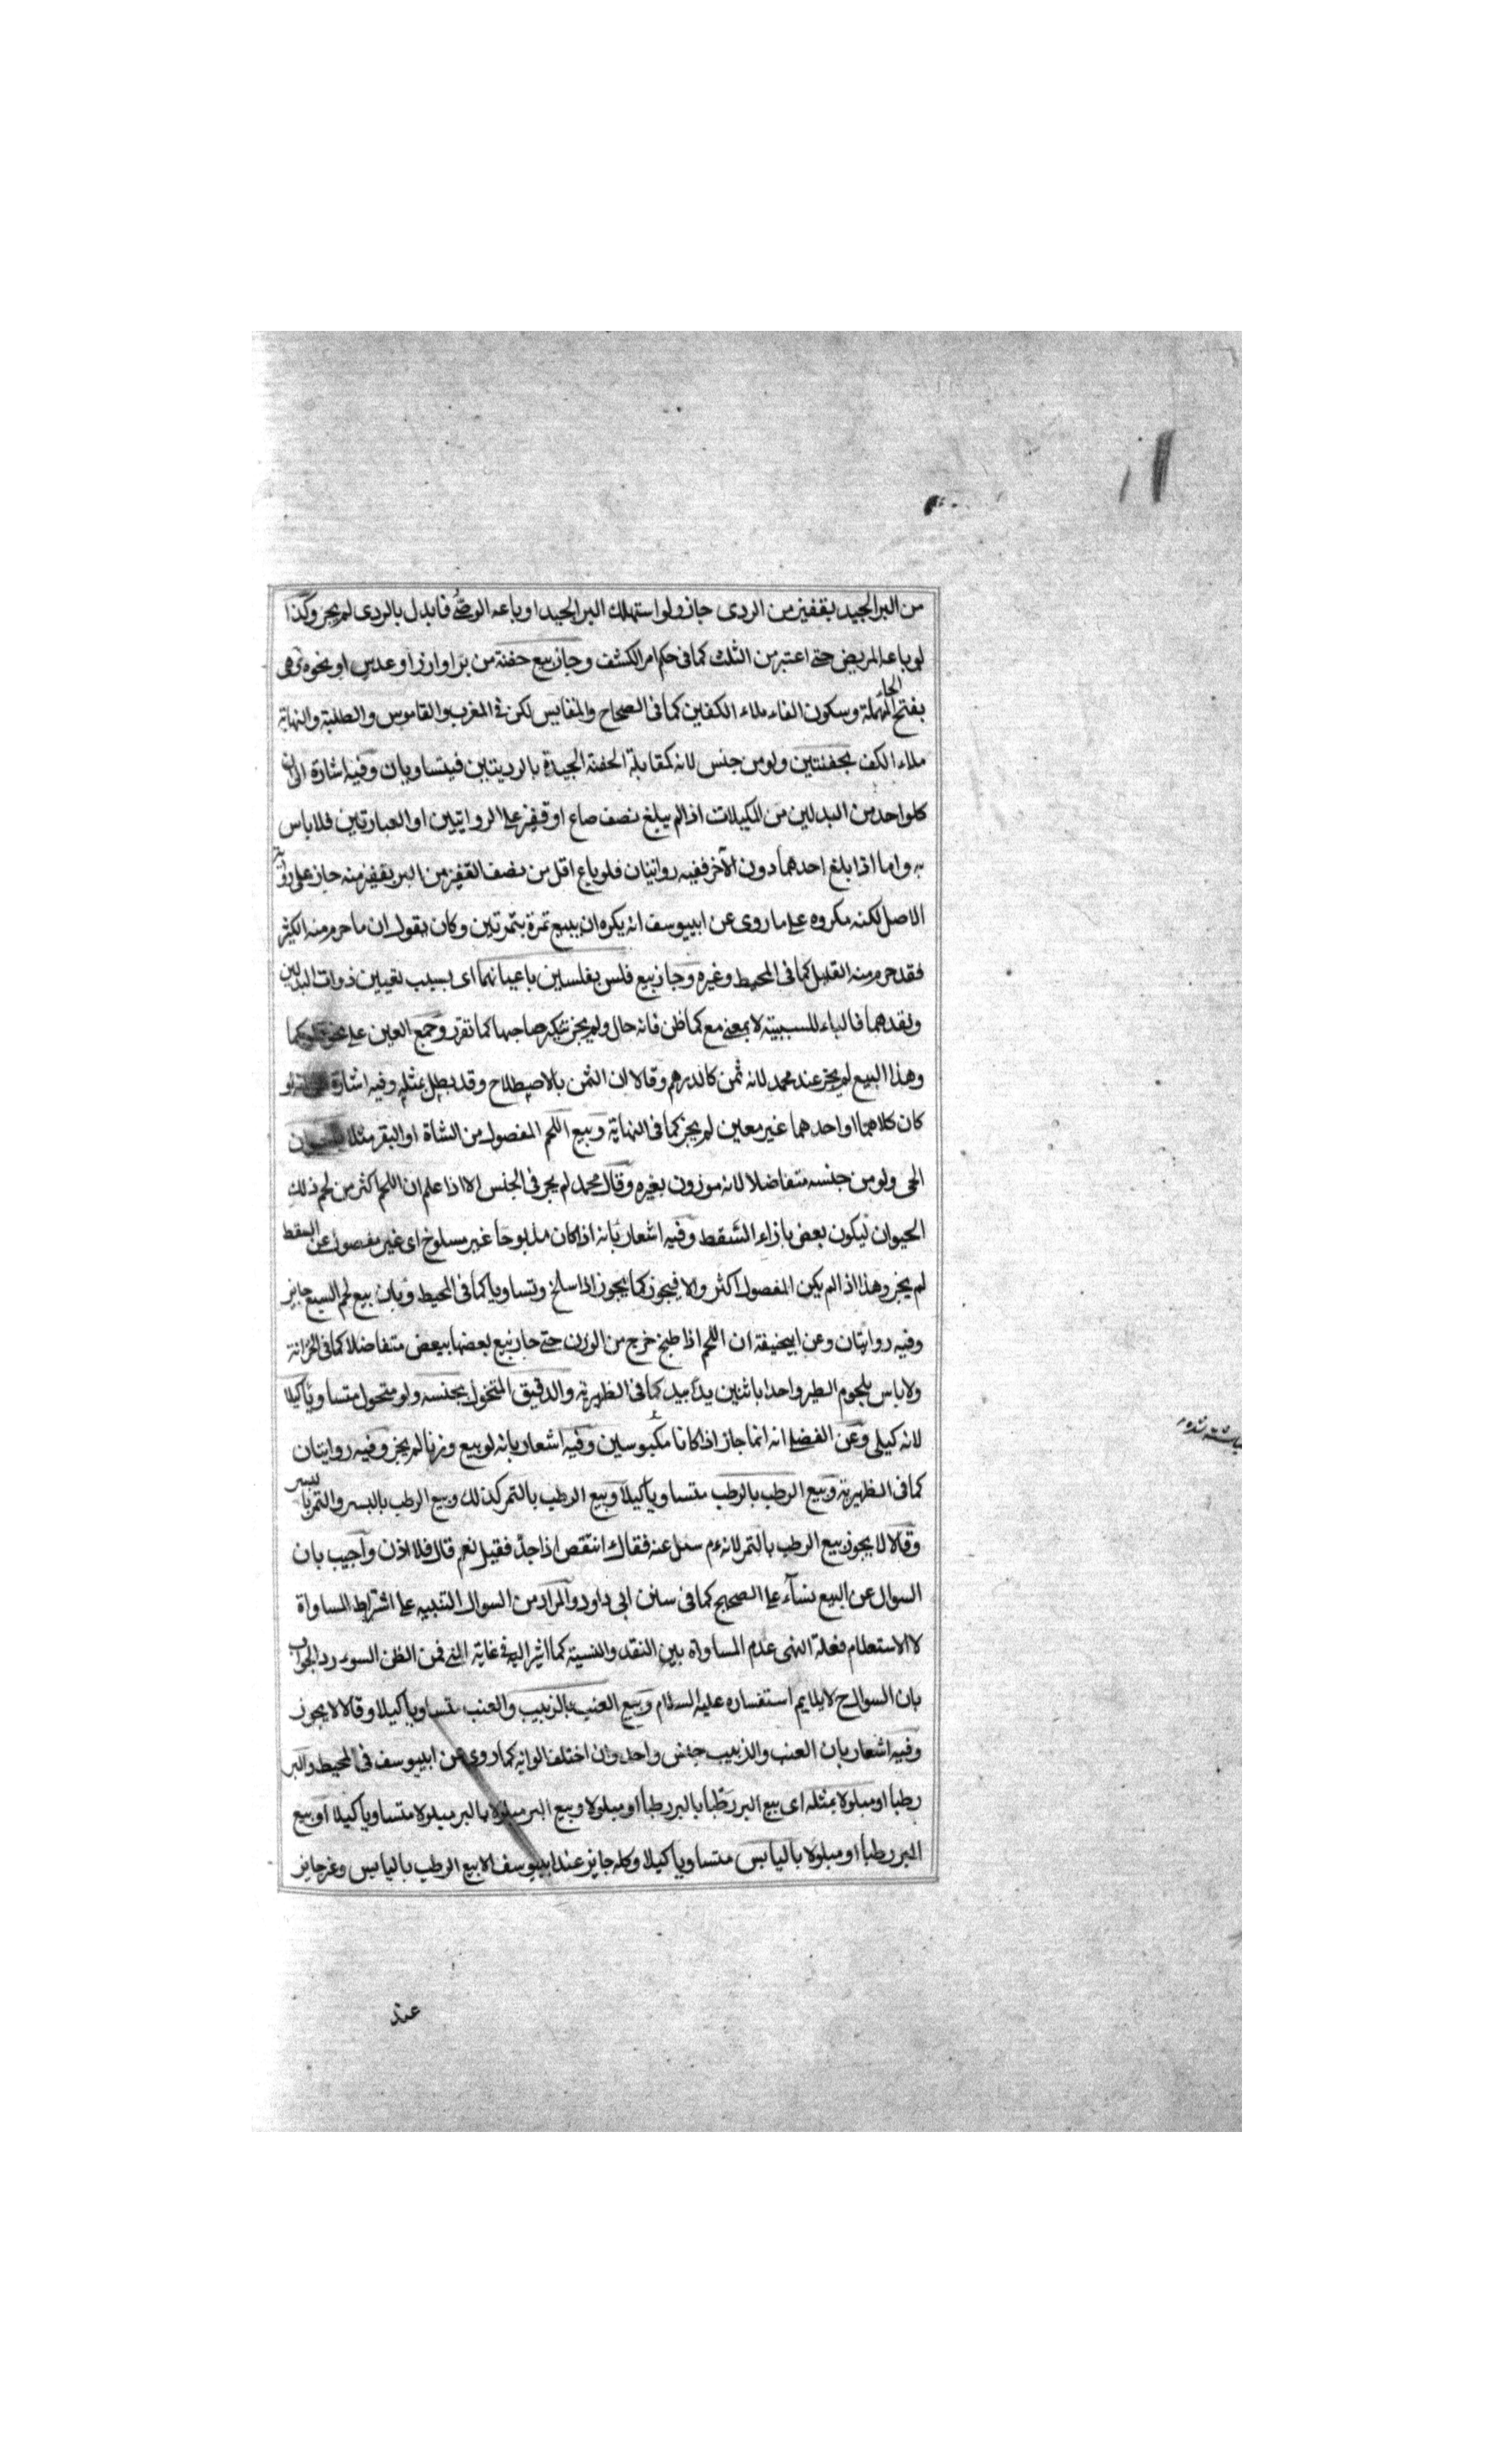 من البر الجيد بقفيز من الردى جاز ولو استهلك البر الجيد او باعه الوصى فابدل بالردى لم يجز وكذا
لو باعه المريض حتى اعتبر من الثلث كما فى حكم امر الكشف وجاز بيع حفنة من بر او ارز او عدس او نحوه وهى
بفتح الحاء المهملة وسكون الفاء ملاء الكفين كما فى الصحاح والمقايس لكن فى المغرب والقاموس والطلبة والنهاية
ملاء الكف بحفنتين ولو من جنس لانه كمقابلة الحفنة الجيدة بالرديتين فيتساويان وفيه اشارة الى ان
كلواحد من البدلين من المكيلات اذا لم يبلغ نصف صاع او قفيز على الروايتين او العبارتين فلا باس
به واما اذا بلغ احدهما دون الآخر ففيه روايتان فلو باع اقل من نصف القفيز من البر بقفيز منه جاز على رواية
الاصل لكنه مكروه على ما روى عن ابييوسف انه يكره ان يبيع تمرة بتمرتين وكان يقول ان ما حرم منه الكثير
فقد حرم منه القليل كما فى المحيط وغيره وجاز بيع فلس بفلسين باعيانهما اى بسبب تعيين ذوات البدلين
ونقدهما فالباء للسببية لا بمعنى مع كما ظن فانه حال ولم يجز تنكير صاحبها كما تقرر وجمع العين على
وهذا البيع لم يجز عند محمد لانه ثمن كالدرهم وقالا ان الثمن بالاصطلاح وقد بطل بمثله وفيه اشارة
كان كلاهما او احدهما غير معين لم يجز كما فى النهاية وبيع اللحم المفصول من الشاة او البقر مثلا
الحى ولو من جنسه متفاضلا لانه موزون بغيره وقال محمد لم يجز فى الجنس الا اذا علم ان اللحم اكثر من لحم ذلك
الحيوان ليكون بعض بازاء السقط وفيه اشعار بانه اذا كان مذبوحا غير مسلوخ اى غير مفصول عن السقط
لم يجز وهذا اذا لم يكن المفصول اكثر والا فيجوز كما يجوز اذا سلخ وتساويا كما فى المحيط وبان بيع لحم السبع جايز
وفيه روايتان وعن ابيحنيفة ان اللحم اذا طبخ خرج من الوزن حتى جاز بيع بعضها ببعض متفاضلا كما فى الخزانة
ولا باس بلحوم الطير واحدا باثنين يدا بيد كما فى الظهيرية والدقيق المنخول بجنسه ولو منخول متساويا كيلا
لانه كيلى وعن الفضلى انه انما جاز اذا كانا مكبوسين وفيه اشعار بانه لو بيع وزنا لم يجز وفيه روايتان
كما فى الظهيرية وبيع الرطب بالرطب متساويا كيلا وبيع الرطب بالتمر كذلك وبيع الرطب بالبسر والتمر بالبسر
وقالا لا يجوز بيع الرطب بالتمر لانه عم سئل عنه فقال انتقص اذا جف فقيل نعم قال فلا اذن واجيب بان
السوال عن البيع نسآء على الصحيح كما فى سنن ابى داود والمراد من السوال التنبيه على اشتراط المساواة
لا الاستعلام فعلة النهى عدم المساواة بين النقد والنسية كما اشير اليه فى غاية فمن الظن السوء رد الجواب
بان السوال ح لا يلايم استفساره عليه السلام وبيع العنب بالزبيب والعنب متساويا كيلا وقالا لا يجوز
وفيه اشعار بان العنب والزبيب جنس واحد وان اختلف الوانه كما روى عن ابييوسف فى المحيط والبر
رطبا او مبلولا بمثله اى بيع البر رطبا بالبر رطبا او مبلولا وبيع البر مبلولا بالبر مبلولا متساويا كيلا او بيع
البر رطبا او مبلولا باليابس متساويا كيلا وكله جايز عند ابييوسف الا بيع الرطب باليابس وغير جايز
عند